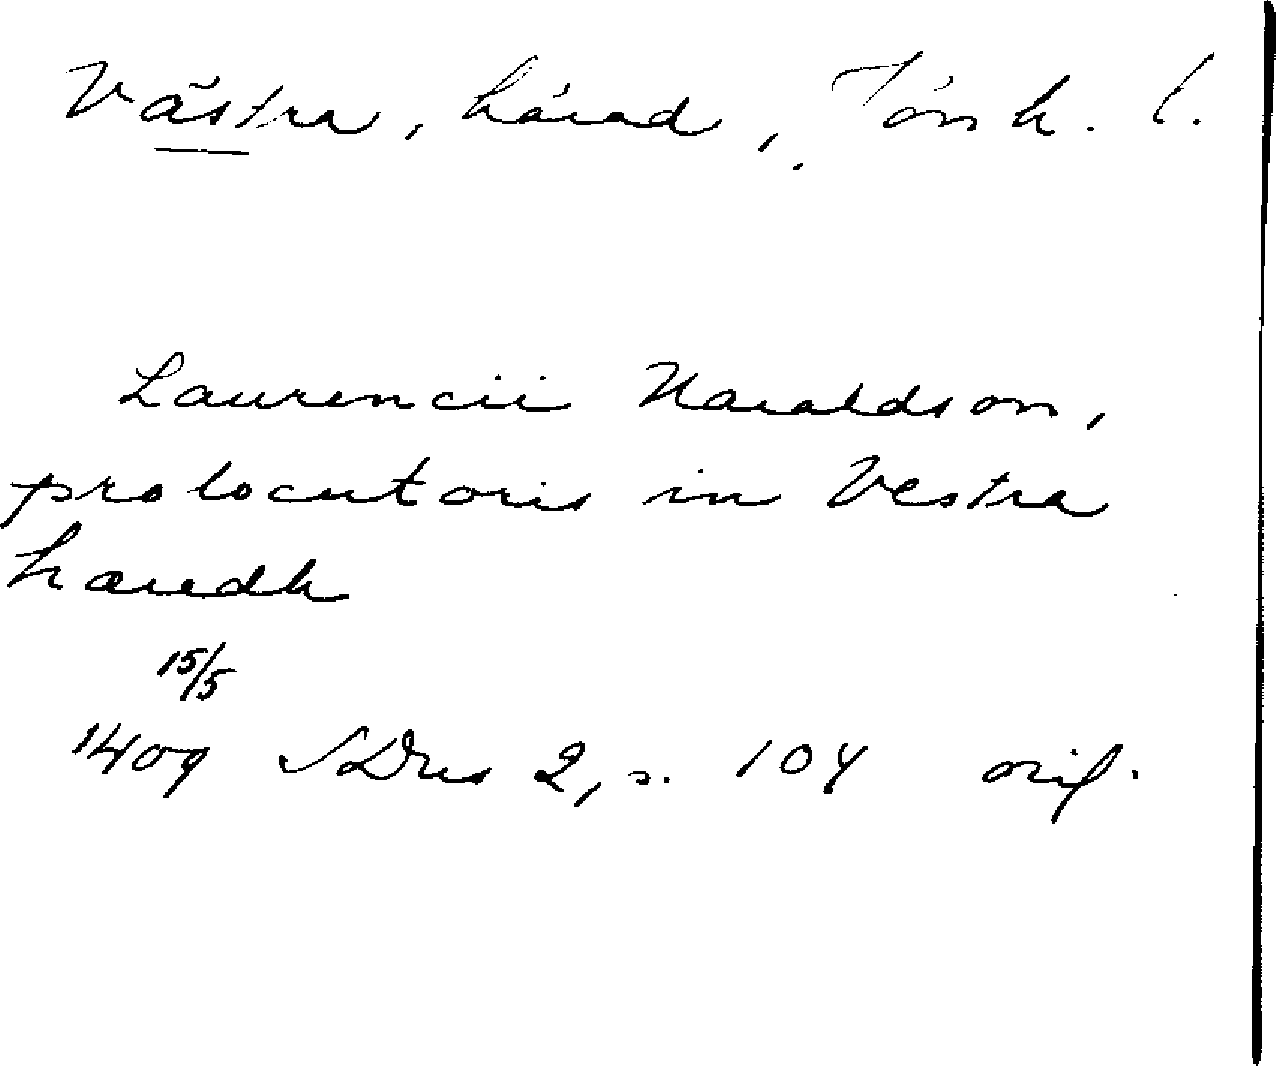 Västra, härad, Jönk. l.
Laurencii Haraldson,
prolocutoris in Vestra
hæredh
15/5
1409 SDns 2, s. 104 orig.